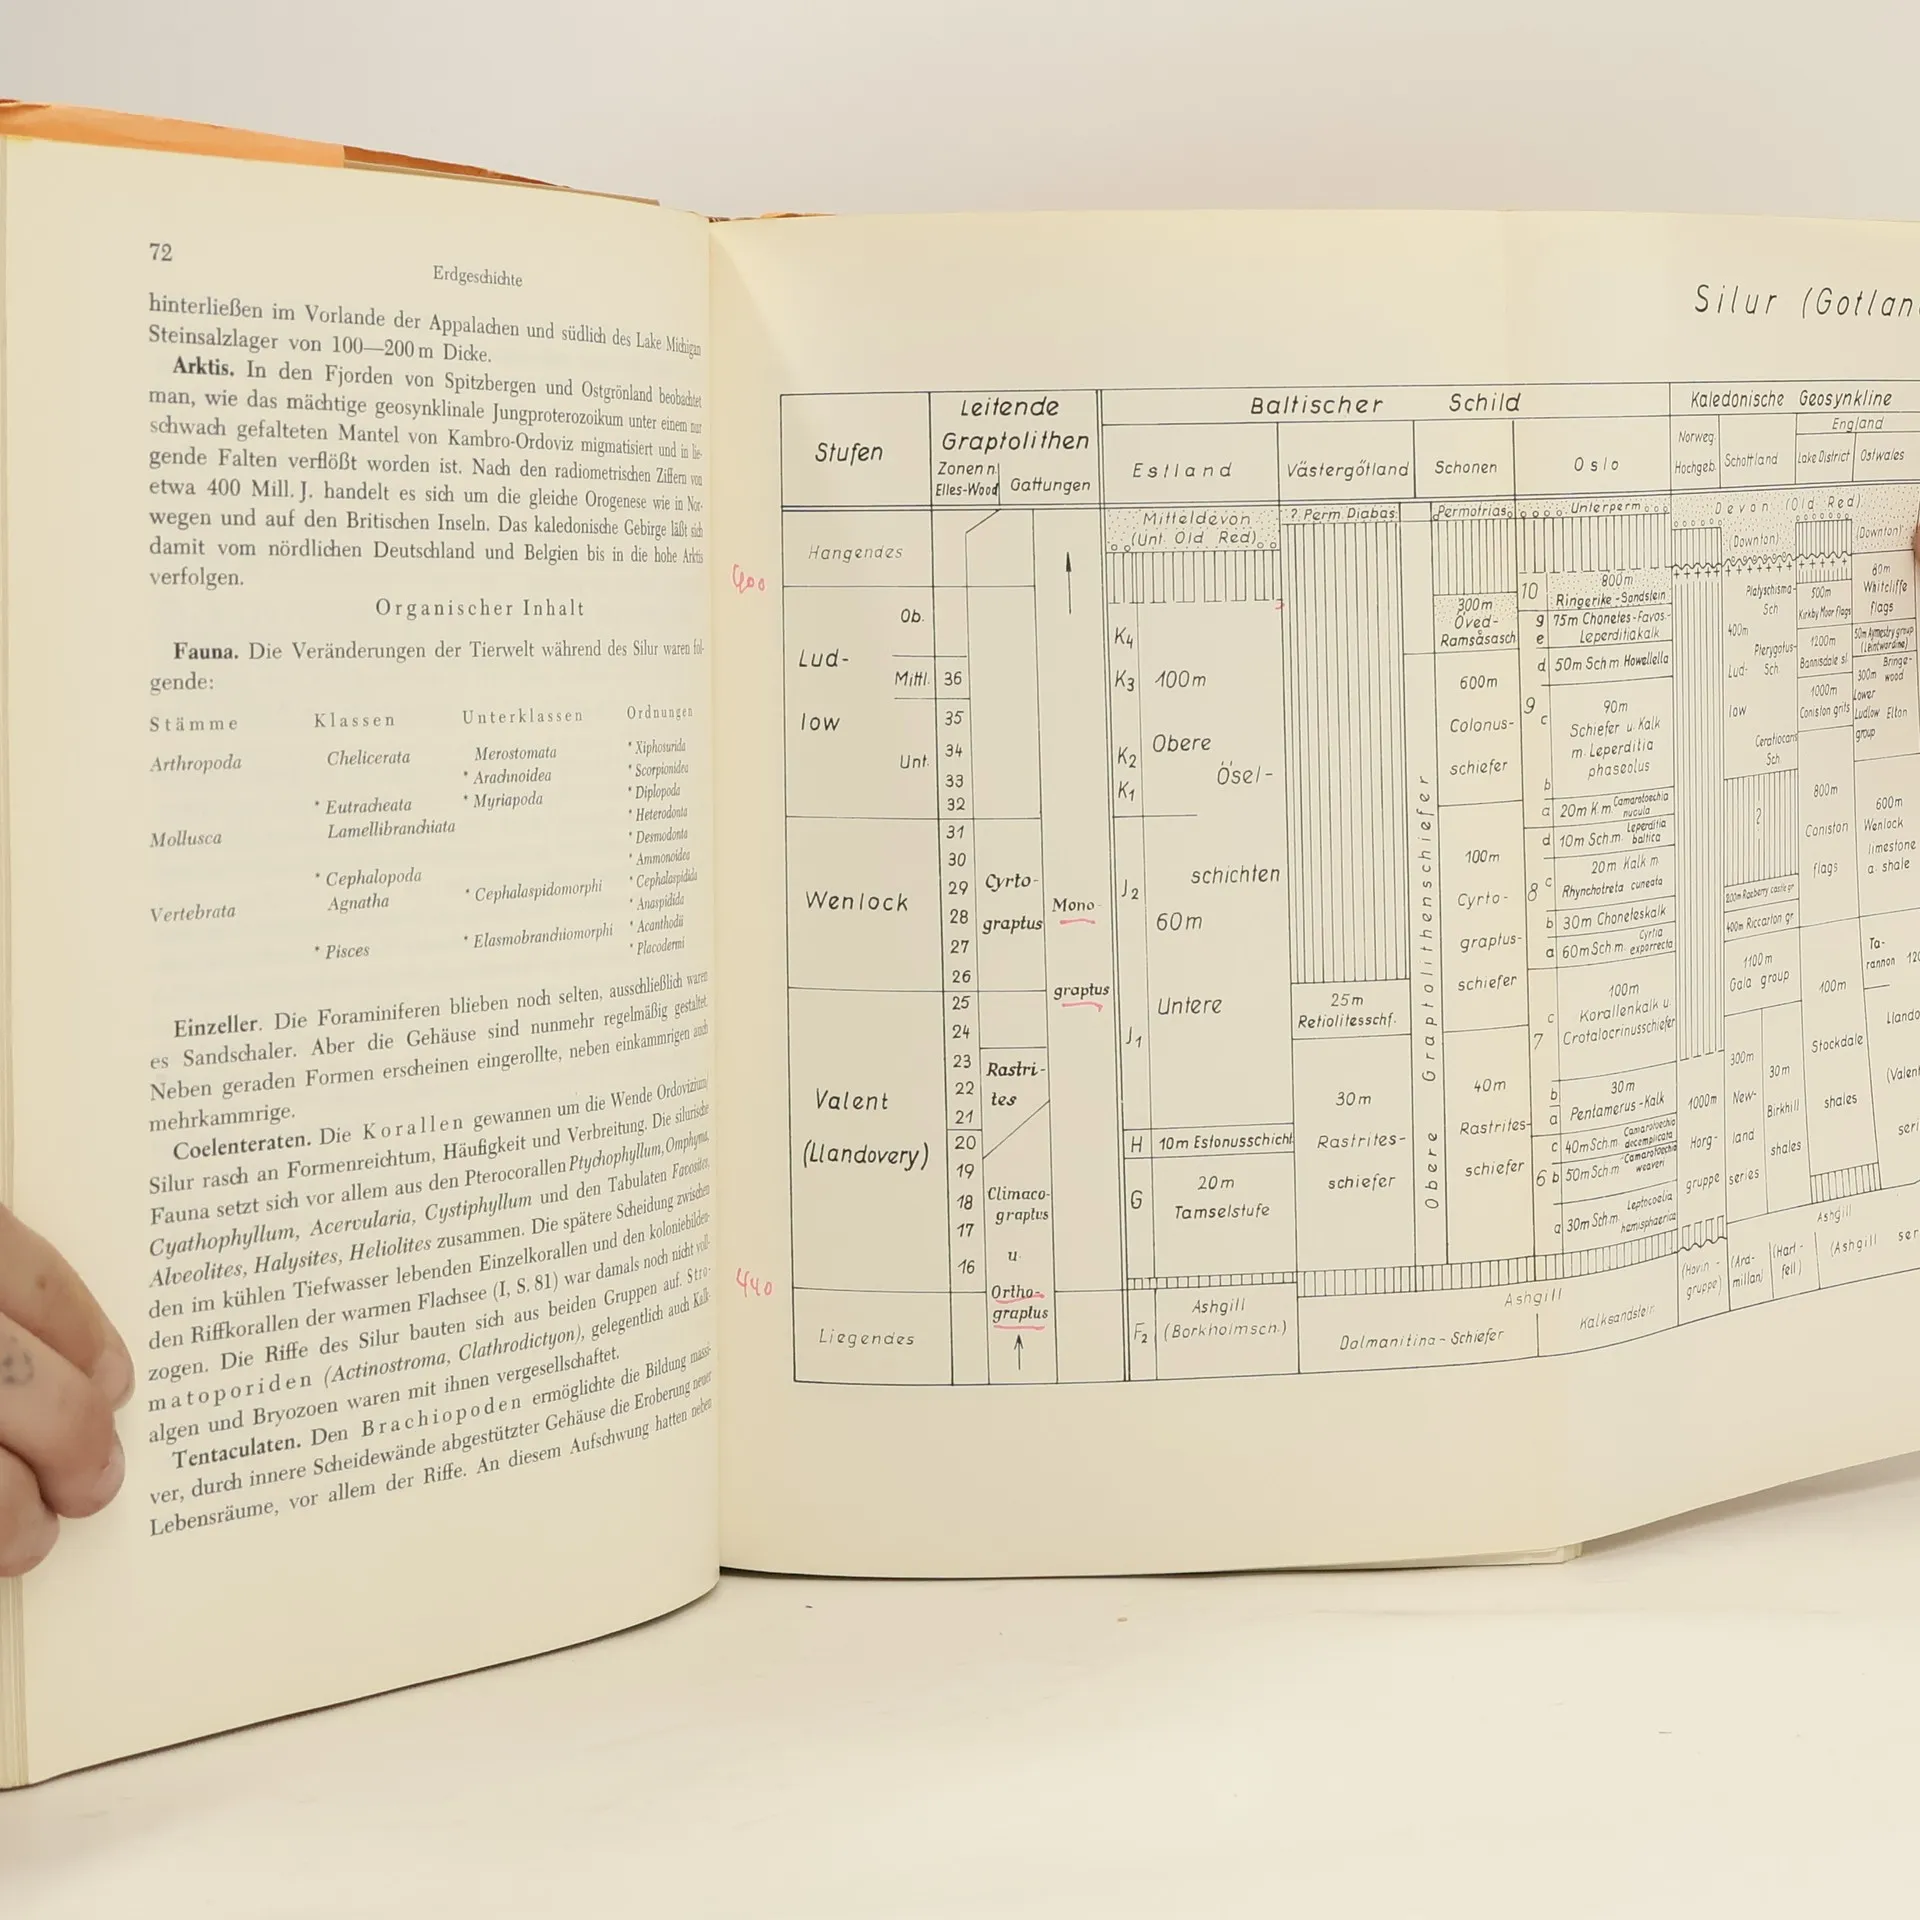 72
Erdgeschichte
hinterließen im Vorlande der Appalachen und südlich des Lake Michigan
Steinsalzlager von 100—200 m Dicke.
Arktis. In den Fjorden von Spitzbergen und Ostgrönland beobachtet
man, wie das mächtige geosynklinale Jungproterozoikum unter einem nur
schwach gefalteten Mantel von Kambro-Ordoviz migmatisiert und in lie-
gende Falten verflößt worden ist. Nach den radiometrischen Ziffern von
etwa 400 Mill. J. handelt es sich um die gleiche Orogenese wie in Nor-
wegen und auf den Britischen Inseln. Das kaledonische Gebirge läßt sich
damit vom nördlichen Deutschland und Belgien bis in die hohe Arktis
verfolgen.
Organischer Inhalt
Fauna. Die Veränderungen der Tierwelt während des Silur waren fol-
gende:
Stämme Klassen Unterklassen Ordnungen
Arthropoda Chelicerata Merostomata * Xiphosurida
* Arachnoidea * Scorpionidea
* Eutracheata * Myriapoda * Diplopoda
Mollusca Lamellibranchiata * Heterodonta
* Desmodonta
* Cephalopoda * Ammonoidea
Vertebrata Agnatha * Cephalaspidomorphi * Cephalaspidida
* Anaspidida
* Pisces * Elasmobranchiomorphi * Acanthodii
* Placodermi
Einzeller. Die Foraminiferen blieben noch selten, ausschließlich waren
es Sandschaler. Aber die Gehäuse sind nunmehr regelmäßig gestaltet.
Neben geraden Formen erscheinen eingerollte, neben einkammrigen auch
mehrkammrige.
Coelenteraten. Die Korallen gewannen um die Wende Ordovizium/
Silur rasch an Formenreichtum, Häufigkeit und Verbreitung. Die silurische
Fauna setzt sich vor allem aus den Pterocorallen Ptychophyllum, Omphyma,
Cyathophyllum, Acervularia, Cystiphyllum und den Tabulaten Favosites,
Alveolites, Halysites, Heliolites zusammen. Die spätere Scheidung zwischen
den im kühlen Tiefwasser lebenden Einzelkorallen und den koloniebilden-
den Riffkorallen der warmen Flachsee (I, S. 81) war damals noch nicht voll-
zogen. Die Riffe des Silur bauten sich aus beiden Gruppen auf. Stro-
matoporiden (Actinostroma, Clathrodictyon), gelegentlich auch Kalk-
algen und Bryozoen waren mit ihnen vergesellschaftet.
Tentaculaten. Den Brachiopoden ermöglichte die Bildung massi-
ver, durch innere Scheidewände abgestützter Gehäuse die Eroberung neuer
Lebensräume, vor allem der Riffe. An diesem Aufschwung hatten neben
Silur (Gotlan
Stufen
Leitende
Graptolithen
Zonen n.
Elles-Wood
Gattungen
Baltischer Schild
Estland
Västergötland
Schonen
Oslo
Kaledonische Geosynkline
Norweg.
Hochgeb.
Schottland
England
Lake District
Ostwales
400
440
Hangendes
Lud-
low
Ob.
Mittl.
Unt.
Wenlock
Valent
(Llandovery)
Liegendes
36
35
34
33
32
31
30
29
28
27
26
25
24
23
22
21
20
19
18
17
16
Cyrto-
graptus
Rastri-
tes
Climaco-
graptus
u.
Ortho-
graptus
Mono-
graptus
Mitteldevon
(Unt. Old Red)
K4
K3
K2
K1
J2
J1
H
G
F2
100m
Obere
Ösel-
schichten
60m
Untere
10m Estonusschicht
20m
Tamselstufe
Ashgill
(Borkholmsch.)
? Perm. Diabas
25m
Retiolitesschf.
30m
Rastrites-
schiefer
Obere Graptolithenschiefer
Permotrias
300m
Öved-
Ramsåsasch
600m
Colonus-
schiefer
100m
Cyrto-
graptus-
schiefer
40m
Rastrites-
schiefer
Dalmanitina-Schiefer
Ashgill
Kalksandstein
Unterperm
10
800m
Ringerike-Sandstein
9
g
e
75m Chonetes-Favos.-
Leperditiakalk
d 50m Sch m Howellella
c
90m
Schiefer u. Kalk
m. Leperditia
phaseolus
b
a 20m K m. Camarotoechia
nucula
8
d 10m Sch.m. Leperditia
baltica
c 20m Kalk m.
Rhynchotreta cuneata
b 30m Choneteskalk
a 60m Sch m. Cyrtia
exporrecta
7
c
100m
Korallenkalk u.
Crotalocrinusschiefer
b
a
30m
Pentamerus-Kalk
6
c 40m Sch m. Camarotoechia
decemplicata
b 50m Sch m. Camarotoechia
weaveri
a 30m Sch m. Leptocoelia
hemisphaerica
Devon (Old Red)
(Downton)
(Downton)
1000m
Horg-
gruppe
(Hovin-
gruppe)
Platyschisma-
Sch
400m
Pterygotus-
Sch
Lud-
low
Ceratiocaris
Sch
?
400m Riccarton gr
1100m
Gala group
300m
New-
land
series
30m
Birkhill
shales
(Hart-
fell)
500m
Kirkby Moor flags
1200m
Bannisdale sl.
1000m
Coniston grits
800m
Coniston
flags
100m
Stockdale
shales
Ashgill
(Ashgill
80m
Whitcliffe
flags
50m Aymestry group
(Leintwardine)
Bringe-
300m wood
Lower
Ludlow Elton
group
600m
Wenlock
limestone
a. shale
Ta-
rannon